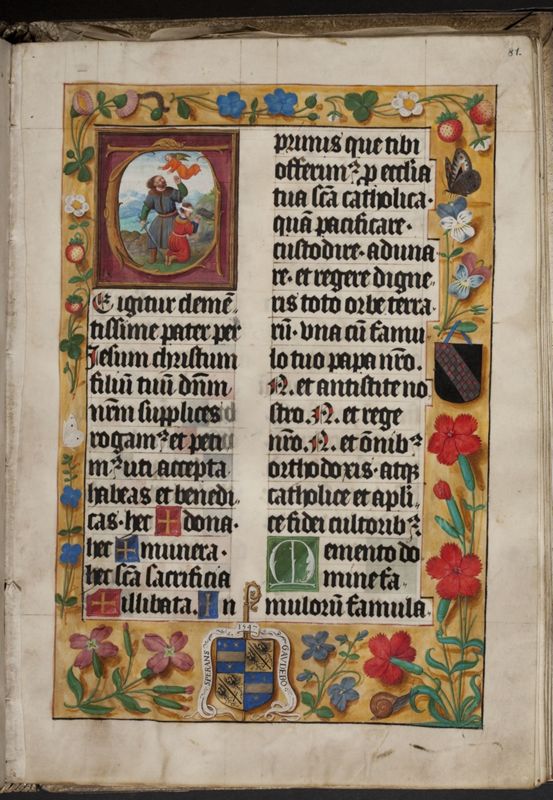 81.
E igitur clemē
tissime pater per
Jesum christum
filiū tuū dn̄m
nr̄m supplices
rogamꝰ et petī
mꝰ uti accepta
habeas et benedi
cas · hec ✠ dona ·
hec ✠ munera ·
hec sc̄a sacrificia
✠ illibata. In
primis que tibi
offerimꝰ p ecclīa
tua sc̄a catholica ·
quā pacificare ·
custodire · aduna
re · et regere digne
ris toto orbe terra
rū · vna cū famu
lo tuo papa nr̄o.
N. et antistite no
stro. N. et rege
nr̄o. N. et om̄ibꝰ
orthodoxis · atqꝫ
catholice et apl̄i
ce fidei cultoribꝰ
Memento do
mine fa
mulorū famula ·
1547
SPERANS
GAVDEBO